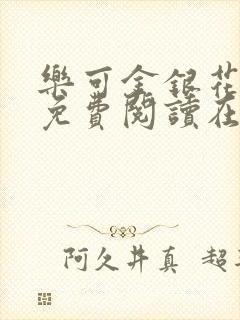 樂可金銀花
免費閱讀在
阿久井真 超